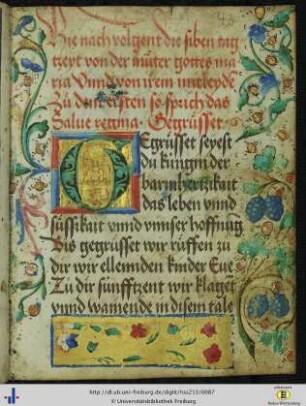 Hie nach volgent die siben tag
zeyt von der muter gottes ma
ria Vnnd von irem mitleyde
Zu dem ersten so sprich das
Salue regina. Gegrüsset
Egrüsset seyest
du küngin der
barmhertzikait
das leben vnnd
süssikait vnnd vnnser hoffnug
Bis gegrüsset wir rüffen zu
dir wir ellennden kinder Eue
Zu dir sünfftzent wir klaget
vnnd wainende in disem tale
http://dl.ub.uni-freiburg.de/diglit/hs
© Universitätsbibliothek Freiburg